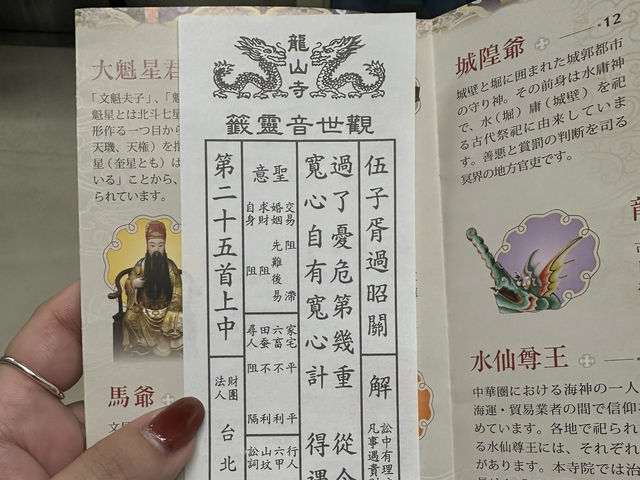 大魁星君
「文魁夫子」、「魁
魁星とは北斗七星
形作る一つ目から
天璣、天権)を指
星(奎星とも)は
いる」ことから、
られています。
馬爺
龍山寺
觀世音靈籤
伍子胥過昭關
解
訟中有理
凡事遇貴
過了憂危第幾重 從今
寬心自有寬心計 得遇
聖意
交易 阻滯
婚姻 先難後易
求財 阻
自身 阻
家宅 平平
六畜 不利
田蚕 不利
尋人 阻隔
行人
六甲
山坟
訟詞
第二十五首上中
財團法人 台北
12
城隍爺
城壁と堀に囲まれた城郭都市
の守り神。その前身は水庸神
で、水(堀)庸(城壁)を祀
る古代祭祀に由来していま
す。善悪と賞罰の判断を司る
冥界の地方官吏です。
水仙尊王
中華圏における海神の一人
海運・貿易業者の間で信仰
めています。各地で祀られ
る水仙尊王には、それぞれ
があります。本寺院では治